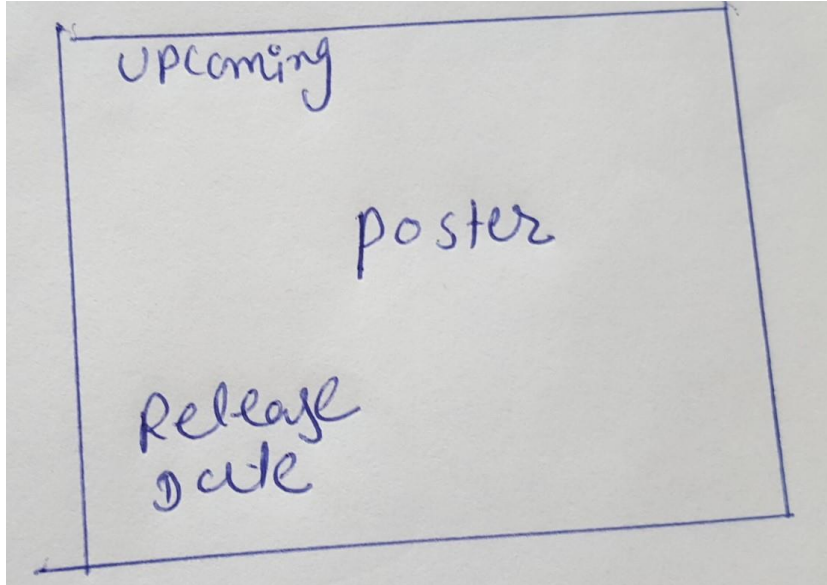 UPComing
poster
Release
Date